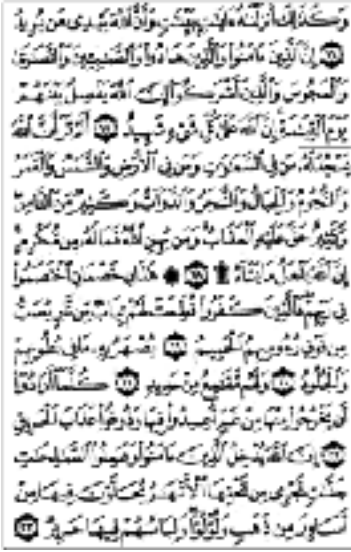 وَكَذَٰلِكَ أَنزَلْنَٰهُ ءَايَٰتٍۭ بَيِّنَٰتٍ وَأَنَّ ٱللَّهَ يَهْدِى مَن يُرِيدُ
۝١٦ إِنَّ ٱلَّذِينَ ءَامَنُوا۟ وَٱلَّذِينَ هَادُوا۟ وَٱلصَّٰبِـِٔينَ وَٱلنَّصَٰرَىٰ
وَٱلْمَجُوسَ وَٱلَّذِينَ أَشْرَكُوٓا۟ إِنَّ ٱللَّهَ يَفْصِلُ بَيْنَهُمْ
يَوْمَ ٱلْقِيَٰمَةِ إِنَّ ٱللَّهَ عَلَىٰ كُلِّ شَىْءٍ شَهِيدٌ ۝١٧ أَلَمْ تَرَ أَنَّ ٱللَّهَ
يَسْجُدُ لَهُۥ مَن فِى ٱلسَّمَٰوَٰتِ وَمَن فِى ٱلْأَرْضِ وَٱلشَّمْسُ وَٱلْقَمَرُ
وَٱلنُّجُومُ وَٱلْجِبَالُ وَٱلشَّجَرُ وَٱلدَّوَآبُّ وَكَثِيرٌ مِّنَ ٱلنَّاسِ
وَكَثِيرٌ حَقَّ عَلَيْهِ ٱلْعَذَابُ وَمَن يُهِنِ ٱللَّهُ فَمَا لَهُۥ مِن مُّكْرِمٍ
إِنَّ ٱللَّهَ يَفْعَلُ مَا يَشَآءُ ۩ ۝١٨ ۞ هَٰذَانِ خَصْمَانِ ٱخْتَصَمُوا۟
فِى رَبِّهِمْ فَٱلَّذِينَ كَفَرُوا۟ قُطِّعَتْ لَهُمْ ثِيَابٌ مِّن نَّارٍ يُصَبُّ
مِن فَوْقِ رُءُوسِهِمُ ٱلْحَمِيمُ ۝١٩ يُصْهَرُ بِهِۦ مَا فِى بُطُونِهِمْ
وَٱلْجُلُودُ ۝٢٠ وَلَهُم مَّقَٰمِعُ مِنْ حَدِيدٍ ۝٢١ كُلَّمَآ أَرَادُوٓا۟
أَن يَخْرُجُوا۟ مِنْهَا مِنْ غَمٍّ أُعِيدُوا۟ فِيهَا وَذُوقُوا۟ عَذَابَ ٱلْحَرِيقِ
۝٢٢ إِنَّ ٱللَّهَ يُدْخِلُ ٱلَّذِينَ ءَامَنُوا۟ وَعَمِلُوا۟ ٱلصَّٰلِحَٰتِ
جَنَّٰتٍ تَجْرِى مِن تَحْتِهَا ٱلْأَنْهَٰرُ يُحَلَّوْنَ فِيهَا مِنْ
أَسَاوِرَ مِن ذَهَبٍ وَلُؤْلُؤًا وَلِبَاسُهُمْ فِيهَا حَرِيرٌ ۝٢٣